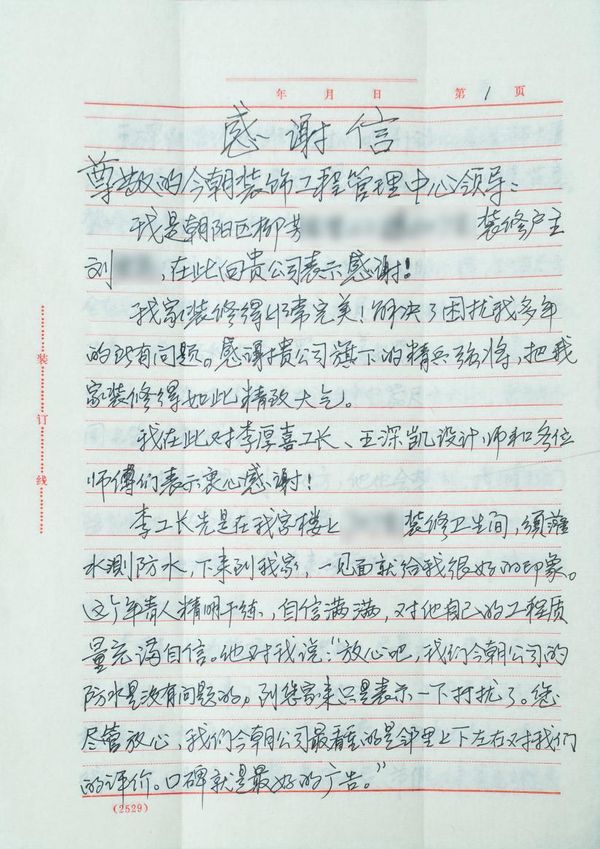 年 月 日 第 1 页
感谢信
尊敬的今朝装饰工程管理中心领导：
我是朝阳区柳芳 装修户主
刘 ，在此向贵公司表示感谢！
我家装修得非常完美！解决了困扰我多年
的所有问题。感谢贵公司旗下的精兵强将，把我
家装修得如此精致大气。
我在此对李厚喜工长、王深凯设计师和各位
师傅们表示衷心感谢！
李工长先是在我家楼上 装修卫生间，须灌
水测防水，下来到我家，一见面就给我很好的印象。
这个年青人精明干练，自信满满，对他自己的工程质
量充满自信。他对我说："放心吧，我们今朝公司的
防水是没有问题的，到您家来只是表示一下打扰了。您
尽管放心，我们今朝公司最看重的是邻里上下左右对我们
的评价。口碑就是最好的广告。"
装订线
(2529)